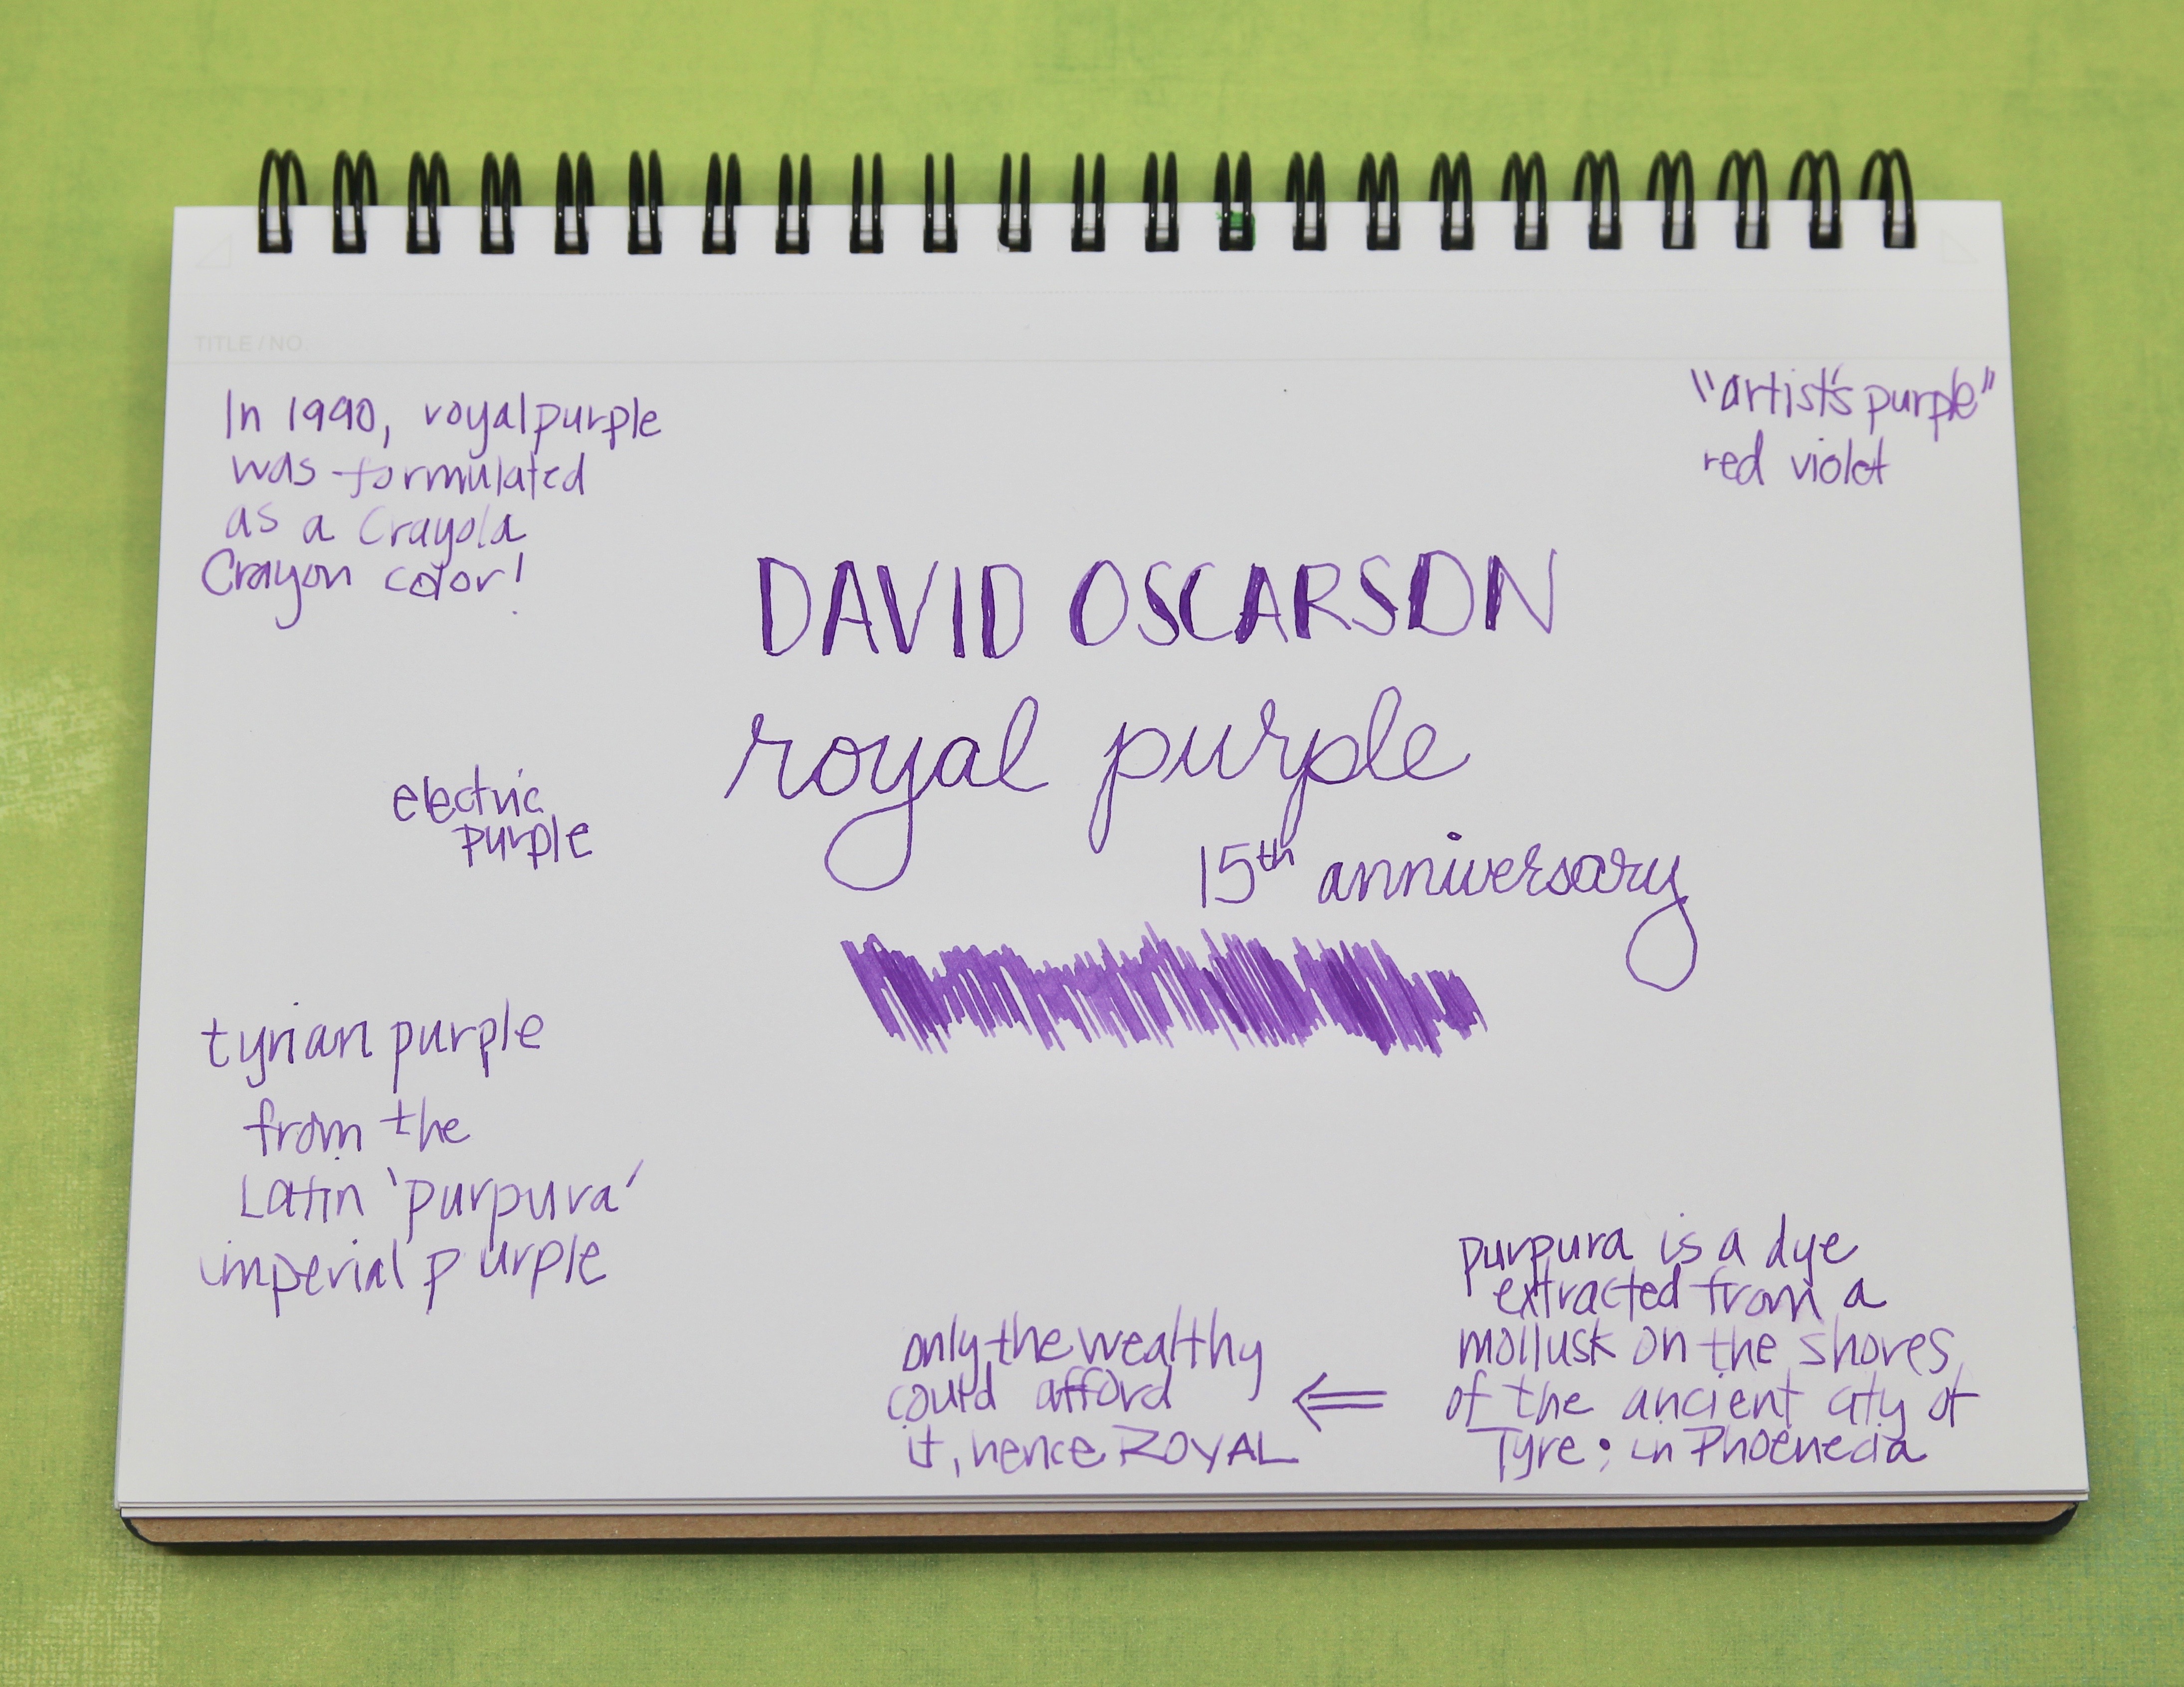 TITLE/NO.
In 1990, royal purple
was formulated
as a Crayola
Crayon color!
"artist's purple"
red violet
DAVID OSCARSON
royal purple
15th anniversary
electric
purple
tyrian purple
from the
Latin 'purpura'
imperial purple
only the wealthy
could afford
it, hence ROYAL
⇐
purpura is a dye
extracted from a
mollusk on the shores
of the ancient city of
Tyre; in Phoenecia